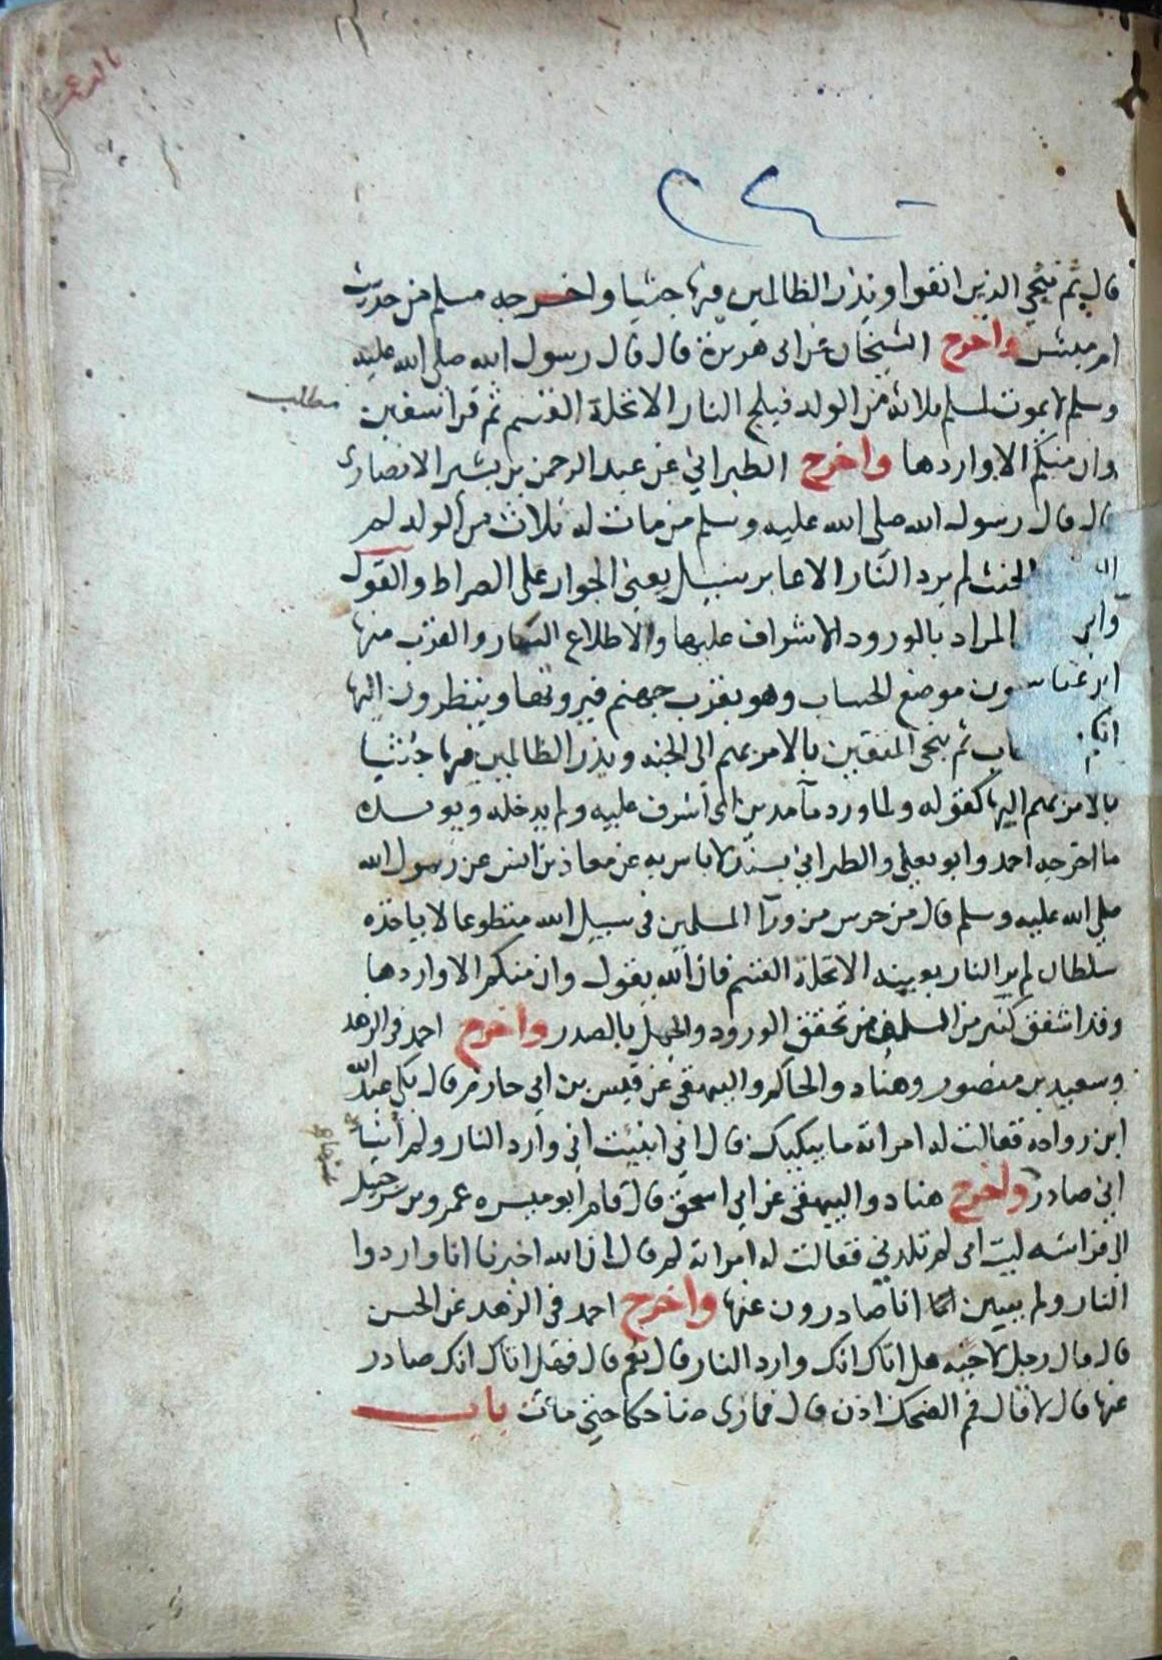 قال ثم ننجي الذين اتقوا ونذر الظالمين فيها جثيا واخرجه مسلم من حديث
ام مبشر واخرج الشيخان عن ابى هريرة قال قال رسول الله صلى الله عليه
وسلم لا يموت لمسلم ثلاثة من الولد فيلج النار الا تحلة القسم ثم قرا سفين
مطلب
وان منكم الا واردها واخرج الطبراني عن عبد الرحمن بن بشير الانصارى
قال قال رسول الله صلى الله عليه وسلم من مات له ثلاث من الولد لم
الحنث لم يرد النار الا عابر سبيل يعنى الجواز على الصراط والقول
المراد بالورود الاشراف عليها والاطلاع والقرب منها
موضع الحساب وهو بقرب جهنم فيرونها وينظرون اليها
ثم ينجى المتقين بالامر بهم الى الجنه ويذر الظالمين فيها جثيا
بالامر بهم اليها كقوله ولما ورد مآ مدين اى اشرف عليه ولم يدخله ويويده
ما اخرجه احمد وابو يعلى والطبراني بسند لا باس به عن معاذ بن انس عن رسول الله
صلى الله عليه وسلم قال من حرس من ورآ المسلمين فى سبيل الله متطوعا لا ياخذه
سلطان لم ير النار بعينه الا تحلة القسم فان الله يقول وان منكم الا واردها
وقد اشفق كثير من السلف من تحقق الورود والجهل بالصدر واخرج احمد فى الزهد
وسعيد بن منصور وهناد والحاكم والبيهقى عن قيس بن ابي حازم قال بكى عبد الله
ابن رواحه فقالت له امراته ما يبكيك قال اني انبئت اني وارد النار ولم أنبأ
اني صادر واخرج هناد والبيهقى عن ابي اسحق قال قام ابو ميسره عمرو بن شرحبيل
الى فراشه ليت امى لم تلدني فقالت له امراته لم قال لان الله اخبرنا انا واردوا
النار ولم يبين لنا انا صادرون عنها واخرج احمد فى الزهد عن الحسن
قال قال رجل لاخيه هل اتاك انك وارد النار قال نعم قال فهل اتاك انك صادر
عنها قال لا قال فم الضحك اذن قال فما رى ضاحكا حتي مات باب